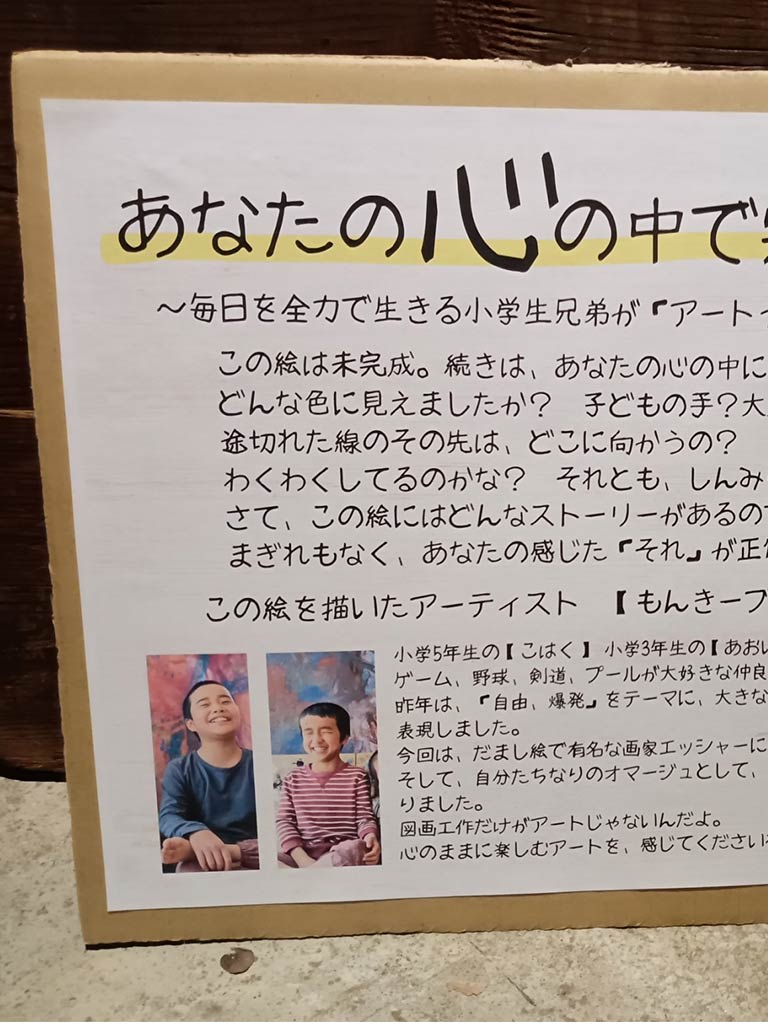 あなたの心の中で
～毎日を全力で生きる小学生兄弟が『アート
この絵は未完成。続きは、あなたの心の中に
どんな色に見えましたか？　子どもの手？大
途切れた線のその先は、どこに向かうの？
わくわくしてるのかな？　それとも、しんみ
さて、この絵にはどんなストーリーがあるの
まぎれもなく、あなたの感じた『それ』が正
この絵を描いたアーティスト　【もんきーブ
小学5年生の【こはく】小学3年生の【あおい
ゲーム、野球、剣道、プールが大好きな仲良
昨年は、『自由、爆発』をテーマに、大きな
表現しました。
今回は、だまし絵で有名な画家エッシャーに
そして、自分たちなりのオマージュとして、
りました。
図画工作だけがアートじゃないんだよ。
心のままに楽しむアートを、感じてください